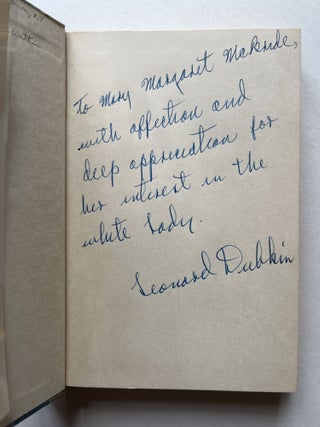 To Mary Margaret McBride,
with affection and
deep appreciation for
her interest in the
white lady.
Leonard Dubkin